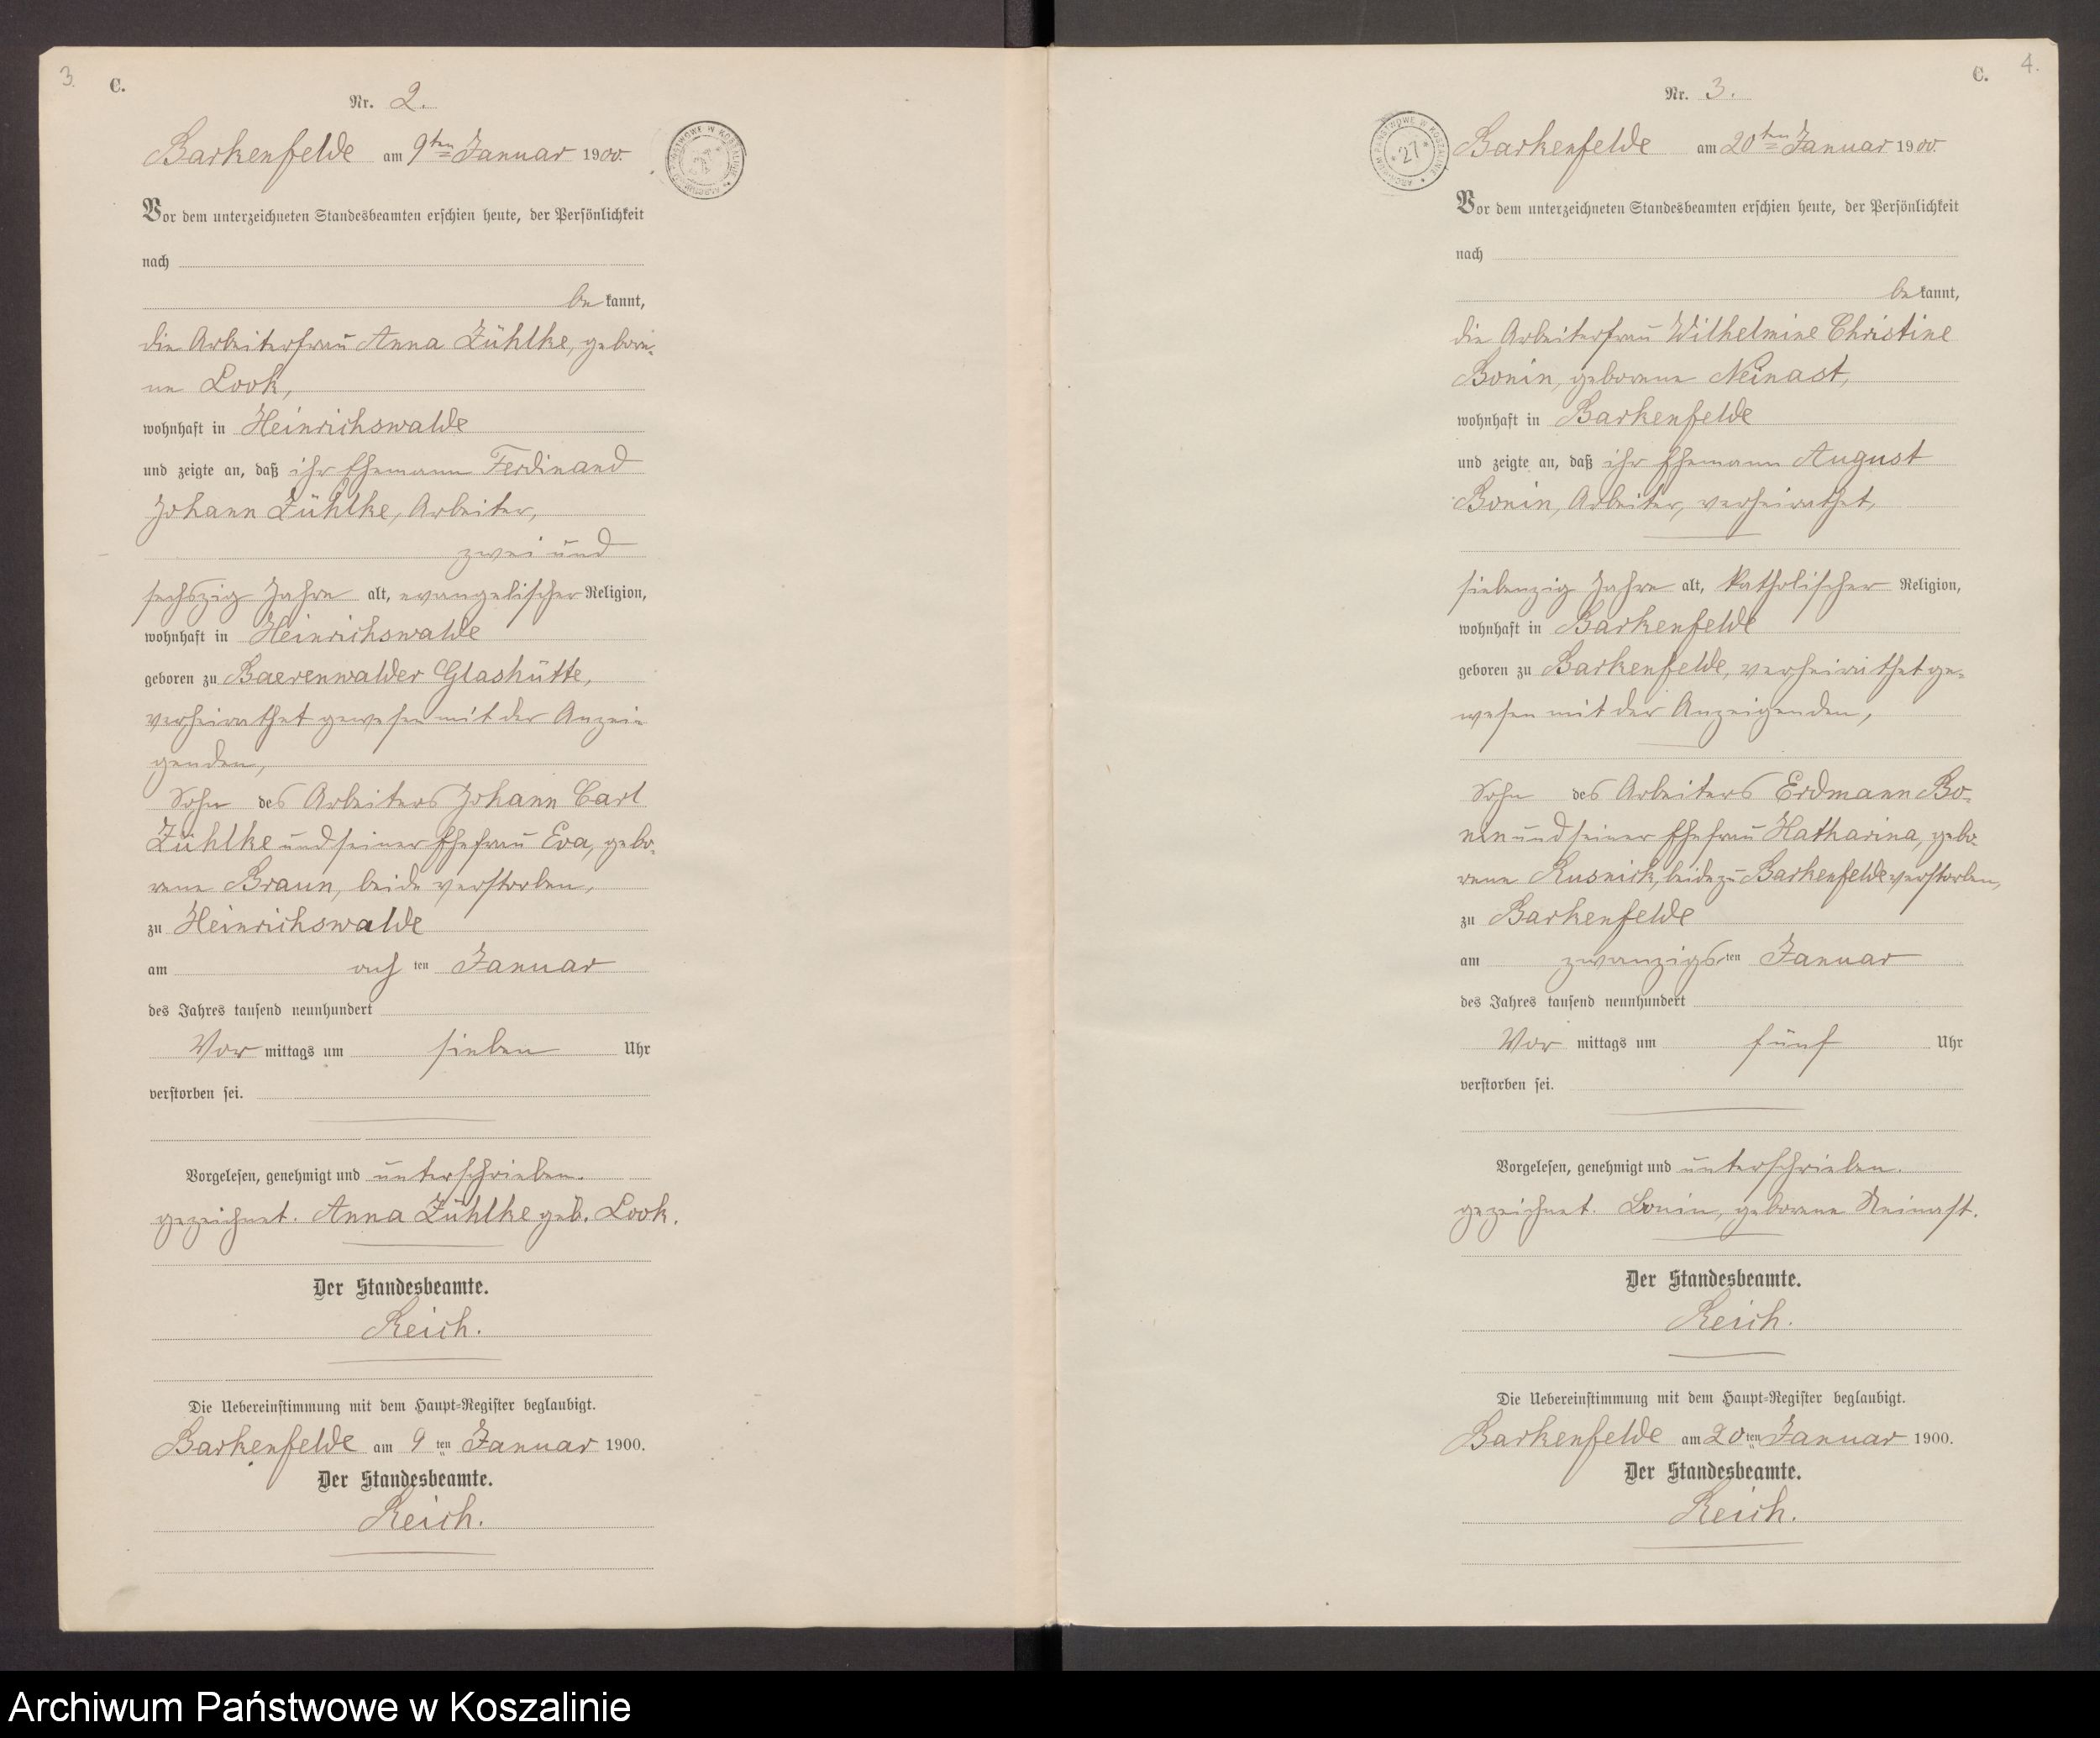 3.
C.
Nr. 2.
Barkenfelde am 9ten Januar 1900.
Vor dem unterzeichneten Standesbeamten erschien heute, der Persönlichkeit
nach
be kannt,
die Arbeiterfrau Anna Zühlke, gebore-
ne Look,
wohnhaft in Heinrichswalde
und zeigte an, daß ihr Ehemann Ferdinand
Johann Zühlke, Arbeiter,
zwei und
sechszig Jahre alt, evangelischer Religion,
wohnhaft in Heinrichswalde
geboren zu Baerenwalder Glashütte,
verheirathet gewesen mit der Anzei-
genden,
Sohn des Arbeiters Johann Carl
Zühlke und seiner Ehefrau Eva, gebo-
rene Braun, beide verstorben,
zu Heinrichswalde
am ach ten Januar
des Jahres tausend neunhundert
Vor mittags um sieben Uhr
verstorben sei.
Vorgelesen, genehmigt und unterschrieben.
gezeichnet. Anna Zühlke geb. Look.
Der Standesbeamte.
Reich.
Die Uebereinstimmung mit dem Haupt-Register beglaubigt.
Barkenfelde am 9 ten Januar 1900.
Der Standesbeamte.
Reich.
4.
C.
Nr. 3.
ARCHIWUM PAŃSTWOWE W KOSZALINIE
* 27 *
Barkenfelde am 20ten Januar 1900.
Vor dem unterzeichneten Standesbeamten erschien heute, der Persönlichkeit
nach
be kannt,
die Arbeiterfrau Wilhelmine Christine
Bonin, geborene Neinast,
wohnhaft in Barkenfelde
und zeigte an, daß ihr Ehemann August
Bonin, Arbeiter, verheirathet,
siebenzig Jahre alt, katholischer Religion,
wohnhaft in Barkenfelde
geboren zu Barkenfelde, verheirathet ge-
wesen mit der Anzeigenden,
Sohn des Arbeiters Erdmann Bo-
nin und seiner Ehefrau Katharina, gebo-
rene Rusnick, beide zu Barkenfelde verstorben,
zu Barkenfelde
am zwanzigs ten Januar
des Jahres tausend neunhundert
Vor mittags um fünf Uhr
verstorben sei.
Vorgelesen, genehmigt und unterschrieben.
gezeichnet. Bonin, geborene Neinast.
Der Standesbeamte.
Reich.
Die Uebereinstimmung mit dem Haupt-Register beglaubigt.
Barkenfelde am 20 ten Januar 1900.
Der Standesbeamte.
Reich.
Archiwum Państwowe w Koszalinie